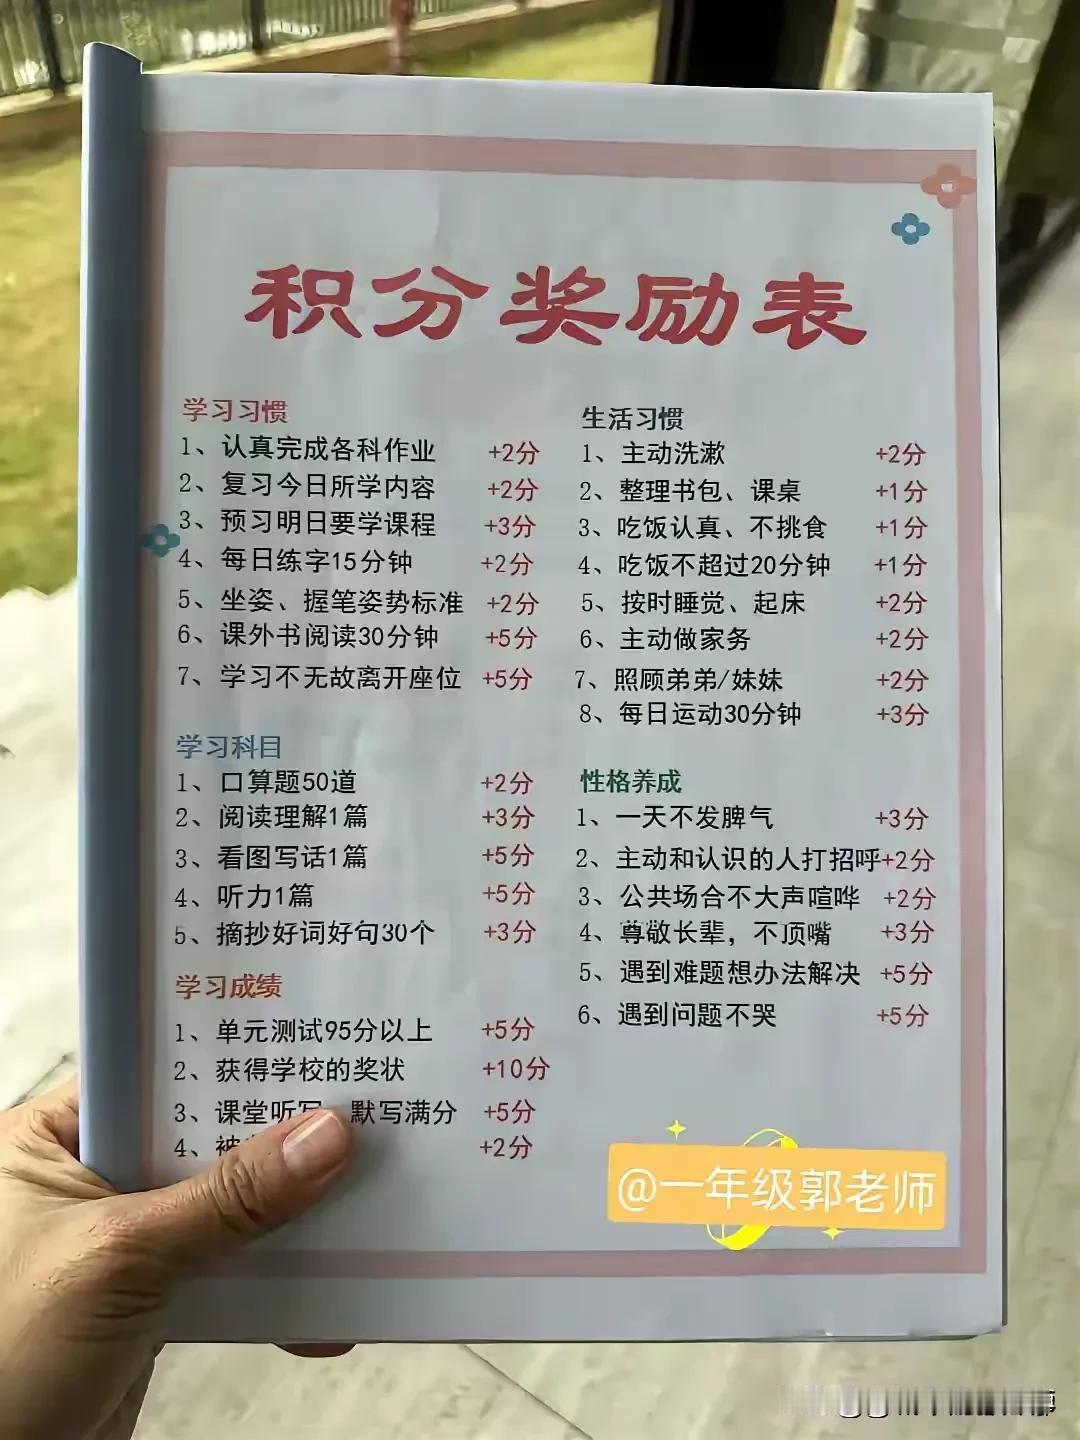 积分奖励表
学习习惯
1、认真完成各科作业 +2分
2、复习今日所学内容 +2分
3、预习明日要学课程 +3分
4、每日练字15分钟 +2分
5、坐姿、握笔姿势标准 +2分
6、课外书阅读30分钟 +5分
7、学习不无故离开座位 +5分
学习科目
1、口算题50道 +2分
2、阅读理解1篇 +3分
3、看图写话1篇 +5分
4、听力1篇 +5分
5、摘抄好词好句30个 +3分
学习成绩
1、单元测试95分以上 +5分
2、获得学校的奖状 +10分
3、课堂听写 默写满分 +5分
4、被 +2分
生活习惯
1、主动洗漱 +2分
2、整理书包、课桌 +1分
3、吃饭认真、不挑食 +1分
4、吃饭不超过20分钟 +1分
5、按时睡觉、起床 +2分
6、主动做家务 +2分
7、照顾弟弟/妹妹 +2分
8、每日运动30分钟 +3分
性格养成
1、一天不发脾气 +3分
2、主动和认识的人打招呼+2分
3、公共场合不大声喧哗 +2分
4、尊敬长辈，不顶嘴 +3分
5、遇到难题想办法解决 +5分
6、遇到问题不哭 +5分
@一年级郭老师